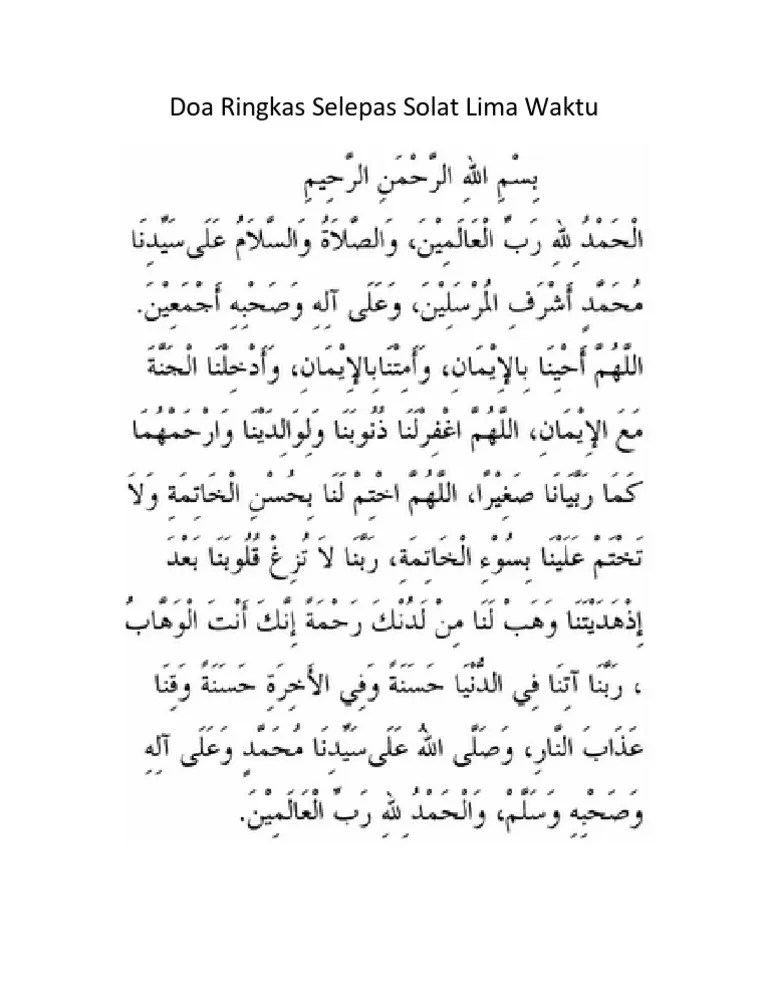 Doa Ringkas Selepas Solat Lima Waktu
بِسْمِ اللهِ الرَّحْمَنِ الرَّحِيمِ
الْحَمْدُ لِلهِ رَبِّ الْعَالَمِيْنَ، وَالصَّلَاةُ وَالسَّلَامُ عَلَى سَيِّدِنَا
مُحَمَّدٍ أَشْرَفِ المُرْسَلِيْنَ، وَعَلَى آلِهِ وَصَحْبِهِ أَجْمَعِيْنَ.
اللَّهُمَّ أَحْيِنَا بِالإِيْمَانِ، وَأَمِتْنَابِالإِيْمَانِ، وَأَدْخِلْنَا الْجَنَّةَ
مَعَ الإِيْمَانِ، اللَّهُمَّ اغْفِرْلَنَا ذُنُوبَنَا وَلِوَالِدَيْنَا وَارْحَمْهُمَا
كَمَا رَبَّيَانَا صَغِيْرًا، اللَّهُمَّ اخْتِمْ لَنَا بِحُسْنِ الْخَاتِمَةِ وَلاَ
تَخْتَمْ عَلَيْنَا بِسُوْءِ الْخَاتِمَةِ، رَبَّنَا لاَ تُزِغْ قُلُوبَنَا بَعْدَ
إِذْهَدَيْتَنَا وَهَبْ لَنَا مِنْ لَدُنْكَ رَحْمَةً إِنَّكَ أَنْتَ الْوَهَّابُ
، رَبَّنَا آتِنَا فِي الدُّنْيَا حَسَنَةً وَفِي الأَخِرَةِ حَسَنَةً وَقِنَا
عَذَابَ النَّارِ، وَصَلَّى اللهُ عَلَى سَيِّدِنَا مُحَمَّدٍ وَعَلَى آلِهِ
وَصَحْبِهِ وَسَلَّمْ، وَالْحَمْدُ لِلهِ رَبِّ الْعَالَمِيْنَ.